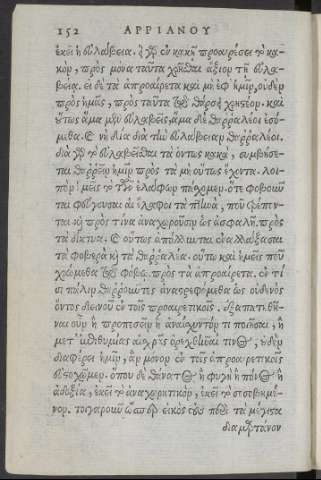 152 ΑΡΡΙΑΝΟΥ
ἐκεῖ ἡ εὐλάβεια. εἰ γὰρ ἐν κακῇ προαιρέσει τὸ κα-
κὸν, πρὸς μόνα ταῦτα χρῆσθαι ἄξιον τῇ εὐλα-
βείᾳ. εἰ δὲ τὰ ἀπροαίρετα καὶ μὴ ἐφ' ἡμῖν, οὐδὲν
πρὸς ἡμᾶς, πρὸς ταῦτα τῷ θάρσει χρηστέον. καὶ
οὕτως ἅμα μὲν εὐλαβεῖς, ἅμα δὲ θαρραλέοι ἐσό-
μεθα. καὶ νὴ δία διὰ τὴν εὐλάβειαν θαρραλέοι.
διὰ γὰρ τὸ εὐλαβεῖσθαι τὰ ὄντως κακὰ, συμβήσε-
ται θαρρεῖν ἡμῖν πρὸς τὰ μὴ οὕτως ἔχοντα. λοι-
πὸν ἡμεῖς τὸ τῶν ἐλάφων πάσχομεν. ὅτε φοβοῦν
ται φεύγουσαι αἱ ἔλαφοι τὰ πτερὰ, ποῦ τρέπον-
ται καὶ πρὸς τίνα ἀναχωροῦσιν ὡς ἀσφαλῆ. πρὸς
τὰ δίκτυα. καὶ οὕτως ἀπόλλυνται ἐναλλάξασαι
τὰ φοβερὰ καὶ τὰ θαρραλέα. οὕτω καὶ ἡμεῖς ποῦ
χρώμεθα τῷ φόβῳ. πρὸς τὰ ἀπροαίρετα. ἐν τί
σι πάλιν θαρροῦντες ἀναστρεφόμεθα ὡς οὐδενὸς
ὄντος δεινοῦ ἐν τοῖς προαιρετικοῖς. ἐξαπατηθῆ-
ναι οὖν ἢ προπεσεῖν ἢ ἀναίσχυντόν τι ποιῆσαι, ἢ
μετ' ἐπιθυμίας αἰσχρᾶς ὀρεχθῆναί τινος, οὐδὲν
διαφέρει ἡμῖν, ἂν μόνον ἐν τοῖς ἀπροαιρετικοῖς
εὐστοχῶμεν. ὅπου δὲ θάνατος ἢ φυγὴ ἢ πόνος ἢ
ἀδοξία, ἐκεῖ τὸ ἀναχωρητικὸν, ἐκεῖ τὸ σεσοβημέ-
νον. τοιγαροῦν ὥσπερ εἰκὸς τοὺς περὶ τὰ μέγιστα
διαμαρτάνον